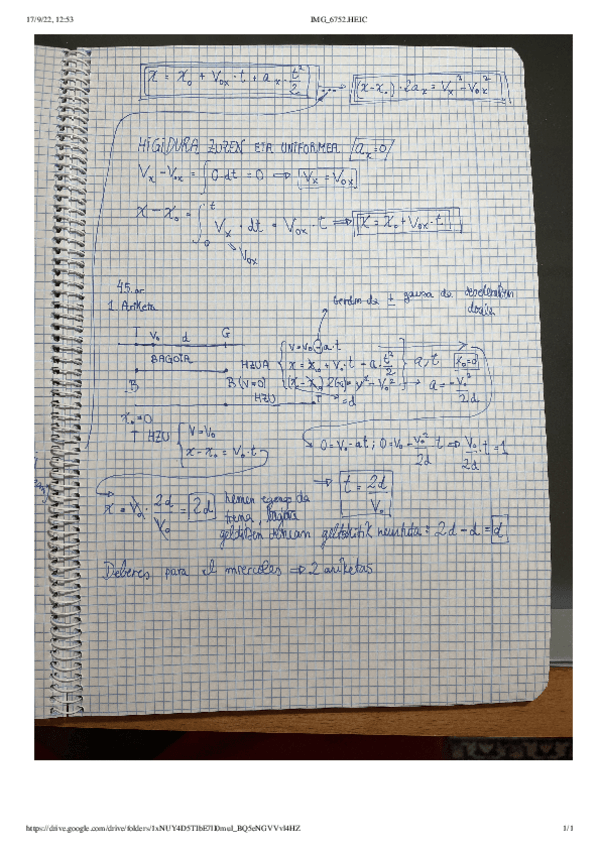 17/9/22, 12:53 IMG_6752.HEIC
x = x₀ + V₀ₓ · t + aₓ · t²/2 (x-x₀) · 2aₓ = Vₓ² - V₀ₓ²
HIGIDURA ZUZEN ETA UNIFORMEA aₓ=0
Vₓ - V₀ₓ = ∫ 0 dt = 0 ⇒ Vₓ = V₀ₓ
x - x₀ = ∫₀ᵗ Vₓ · dt = V₀ₓ · t ⇒ x = x₀ + V₀ₓ · t
V₀ₓ
45. or
1. Ariketa
berdin da ± gauza da
T V₀ d G
BAGOIA
v = v₀ - a·t
HZUA x = x₀ + V₀ · t - a · t²/2 a, t x₀=0
B B (v=0) (x-x₀) = v² - V₀² → a = -V₀²/2d
HZU T =d
x₀=0
T HZU v = v₀
x - x₀ = V₀ · t
0 = V₀ - at ; 0 = V₀ - V₀²/2d t ⇒ V₀/2d · t = 1
→ t = 2d/V₀
x = V₀ · 2d/V₀ = 2d hemen egongo da
trena, bagoia
gelditzen denean geltokitik neurtuta = 2d - d = d
Deberes para el miercoles ⇒ 2 ariketas
https://drive.google.com/drive/folders/1xNUY4D5TIbE7l1Dmul_BQ5eNGVVvl4HZ 1/1